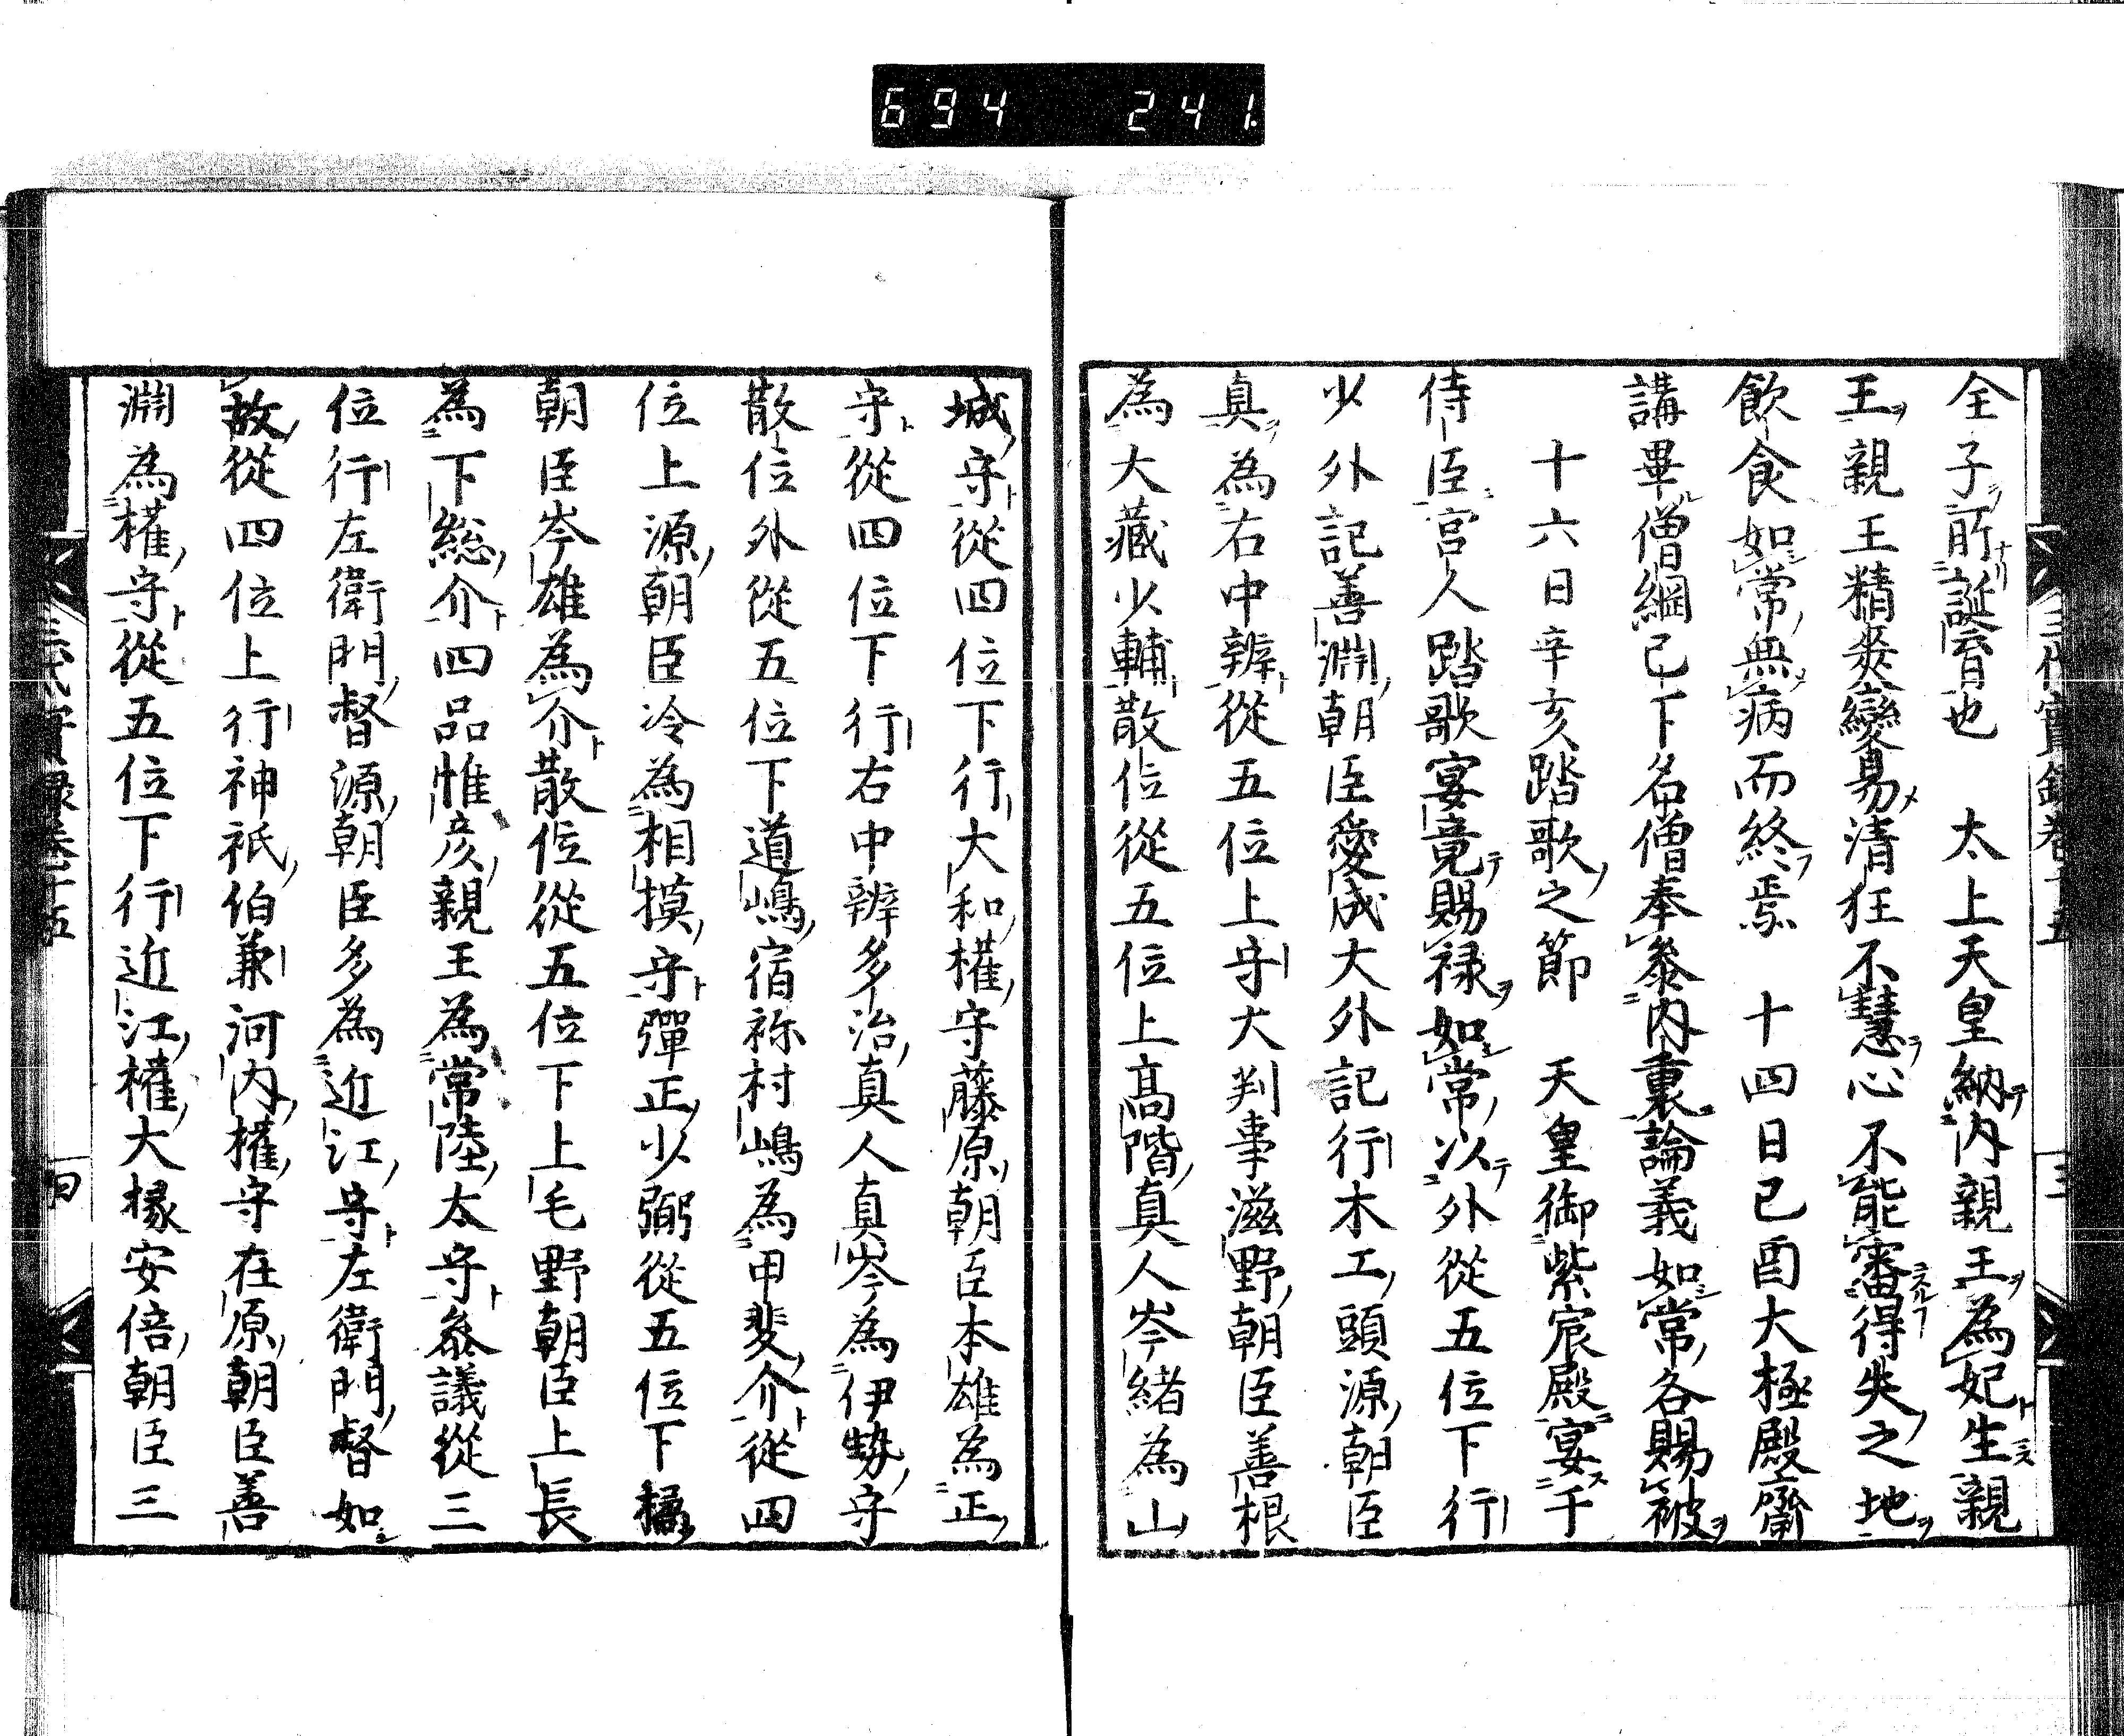 694 241.
三代實錄卷十五 三
全子所誕育也 太上天皇納内親王為妃生親
王親王精爽變易清狂不慧心不能審得失之地
飲食如常無病而終焉 十四日己酉大極殿齋
講畢僧綱已下名僧奉參内裏論義如常各賜被
十六日辛亥踏歌之節 天皇御紫宸殿宴于
侍臣宮人踏歌宴竟賜禄如常以外從五位下行
少外記善淵朝臣愛成大外記行木工頭源朝臣
真為右中辨從五位上守大判事滋野朝臣善根
為大藏少輔散位從五位上高階真人岑緒為山
城守從四位下行大和權守藤原朝臣本雄為正
守從四位下行右中辨多治真人真岑為伊勢守
散位外從五位下道嶋宿祢村嶋為甲斐介從四
位上源朝臣冷為相摸守彈正少弼從五位下橘
朝臣岑雄為介散位從五位下上毛野朝臣上長
為下総介四品惟彦親王為常陸太守參議從三
位行左衛門督源朝臣多為近江守左衛門督如
故從四位上行神祇伯兼河内權守在原朝臣善
淵為權守從五位下行近江權大掾安倍朝臣三
三代實錄卷十五 四